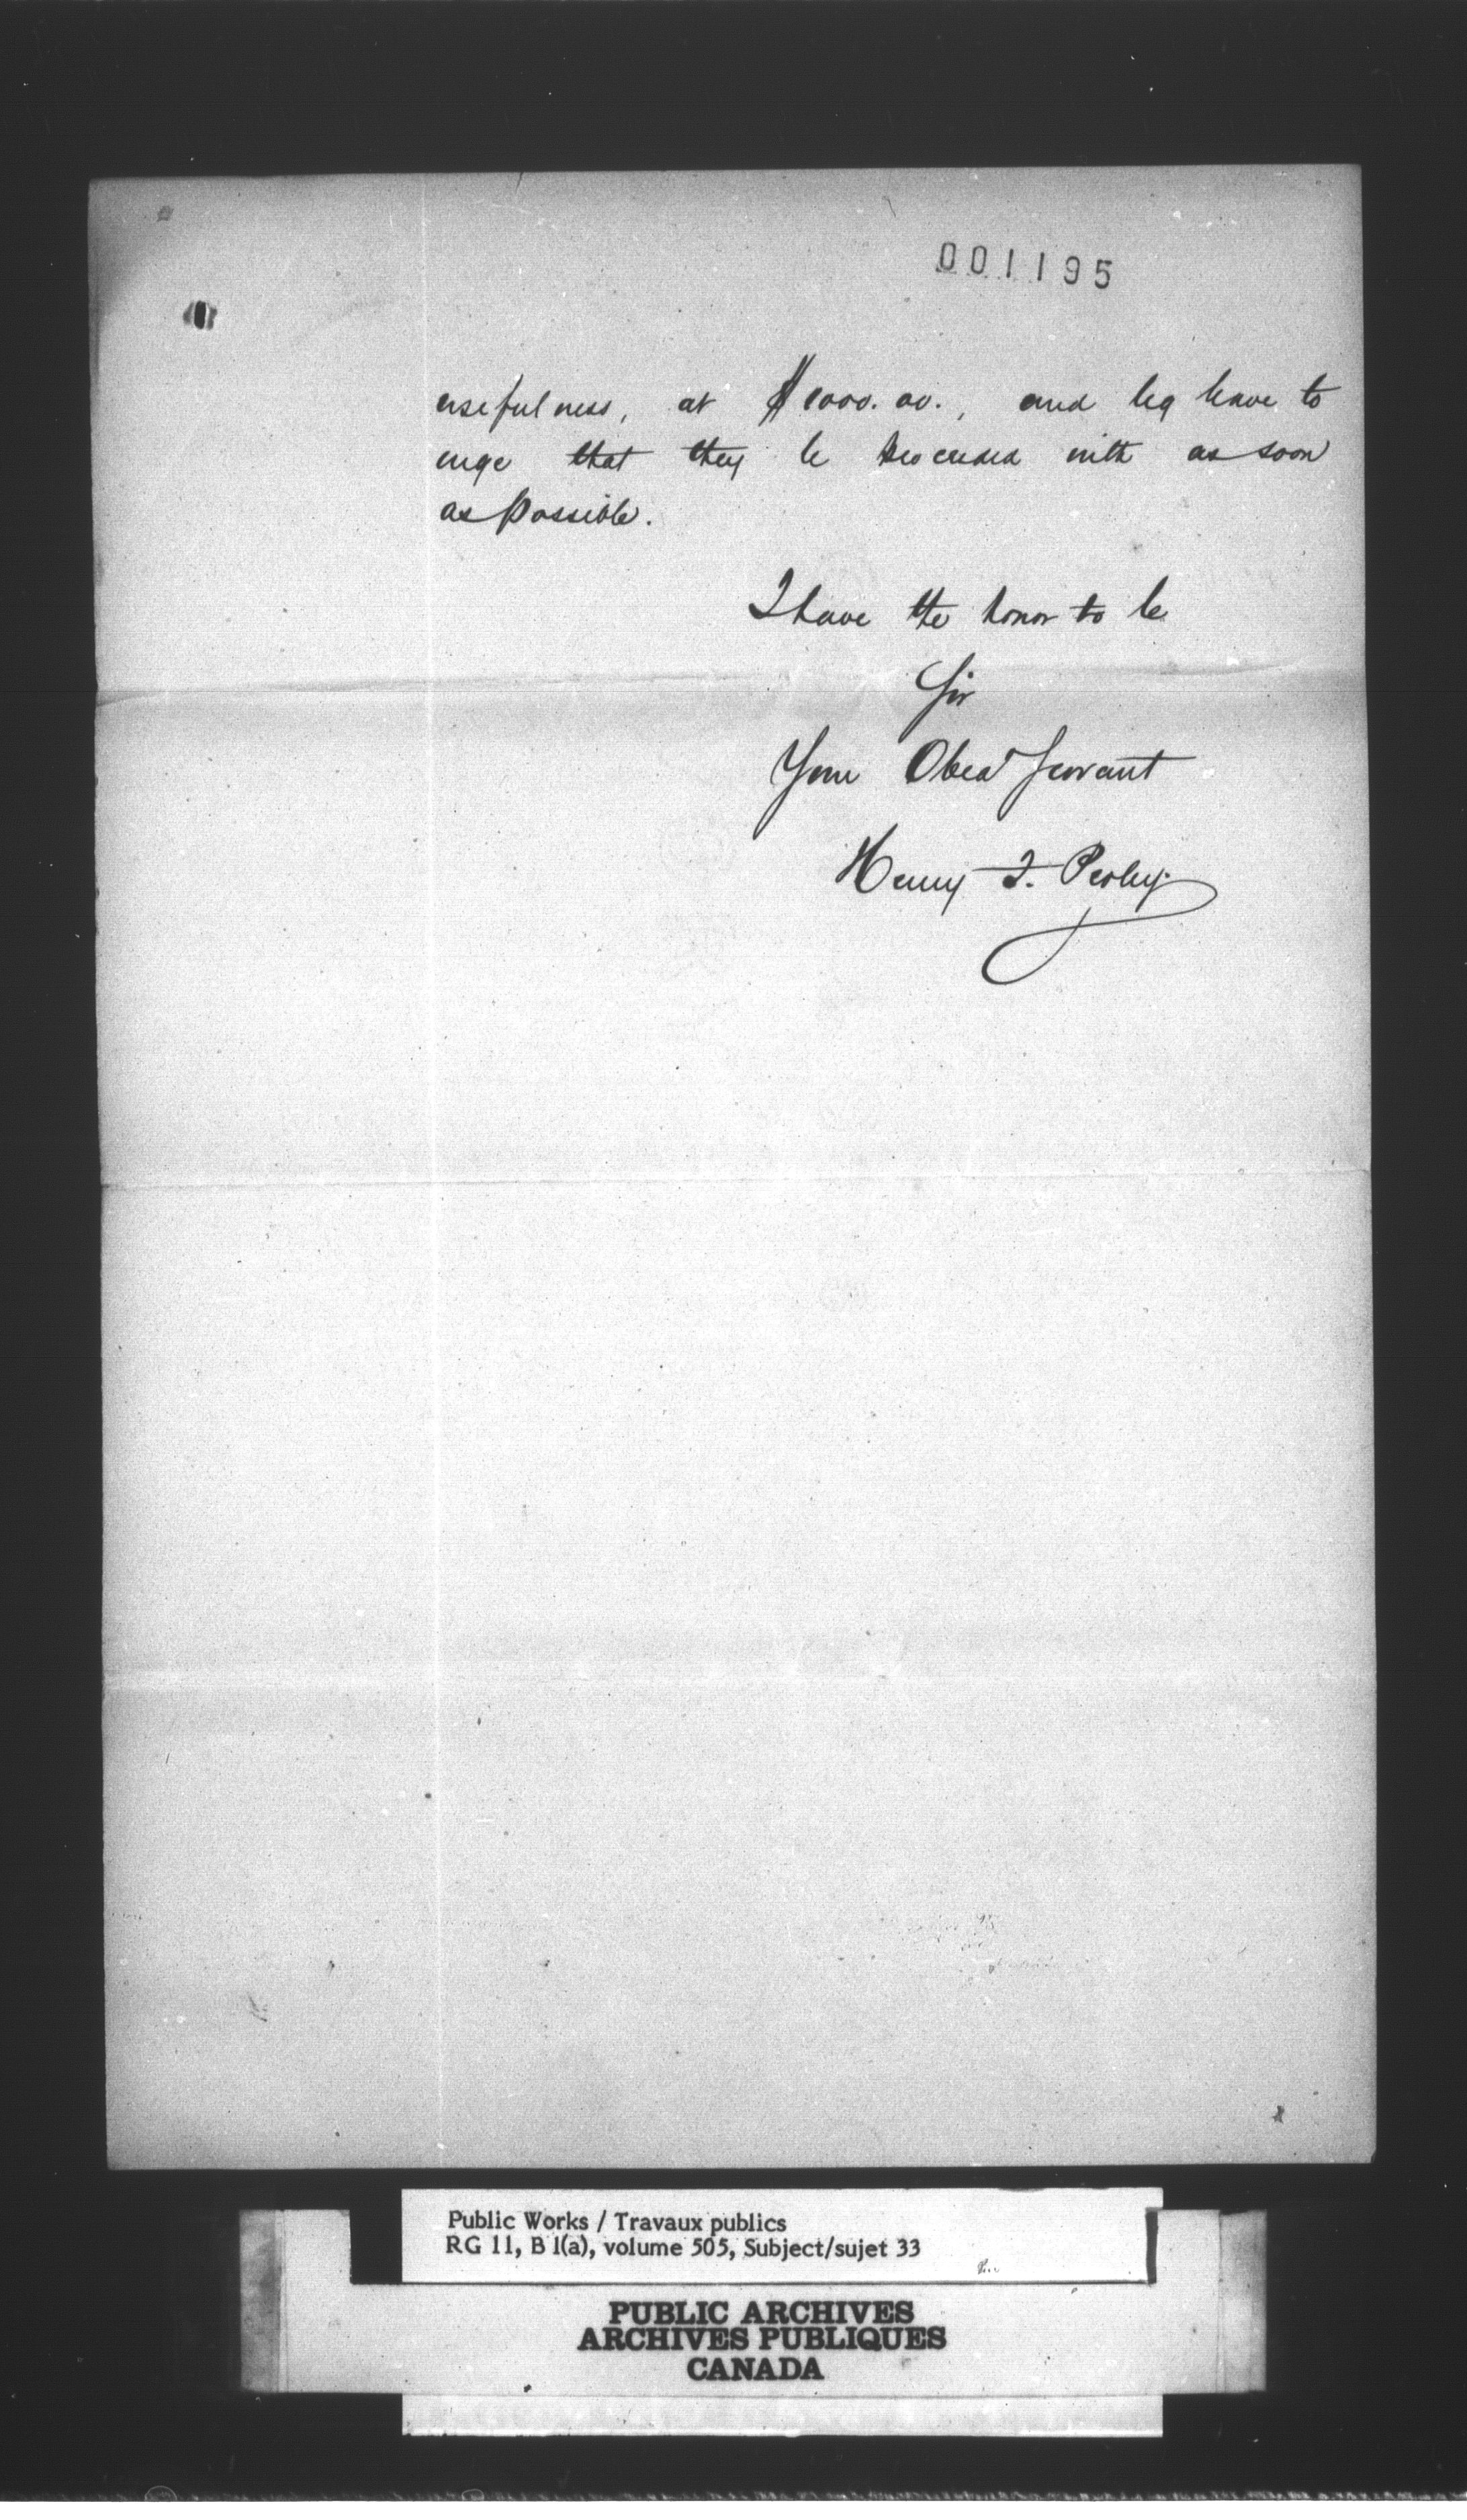 001195
usefulness, at $1000.00., and beg leave to
urge that they be proceeded with as soon
as possible.
I have the honor to be
Sir
Your Obed Servant
Henry F. Perley.
Public Works / Travaux publics
RG 11, B 1(a), volume 505, Subject/sujet 33
PUBLIC ARCHIVES
ARCHIVES PUBLIQUES
CANADA